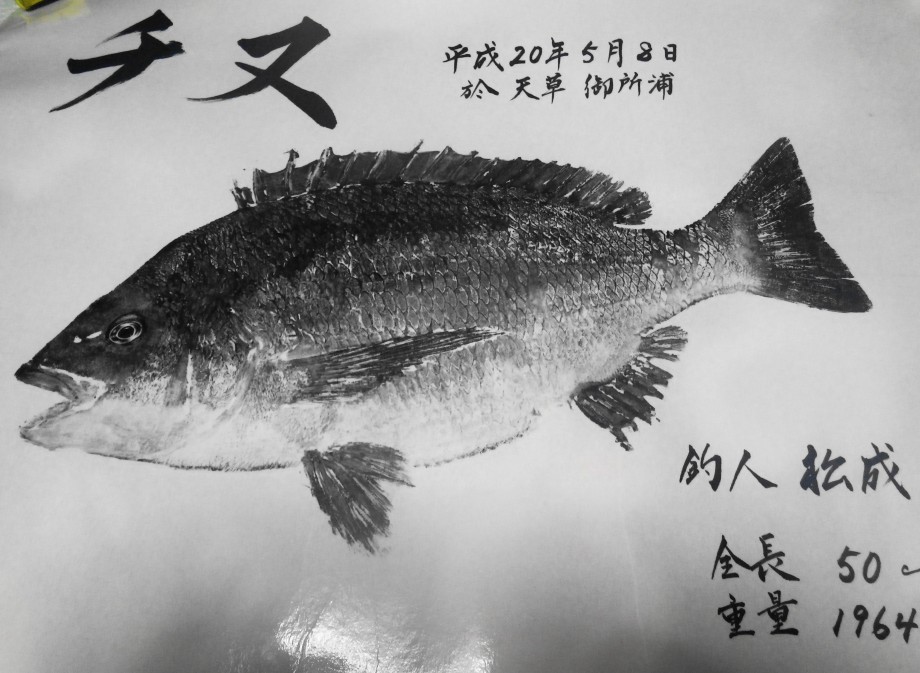 チヌ
平成20年5月8日
於 天草 御所浦
釣人 松成
全長 50
重量 1964